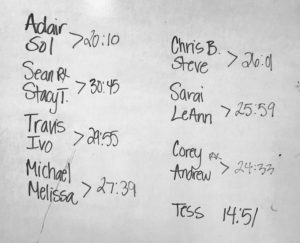 Adair
Sol > 20:10
Sean Rx
Stacy T. > 30:45
Travis
Ivo > 29:55
Michael
Melissa > 27:39
Chris B.
Steve > 26:01
Sarai
LeAnn > 25:59
Corey Rx
Andrew > 24:33
Tess 14:51